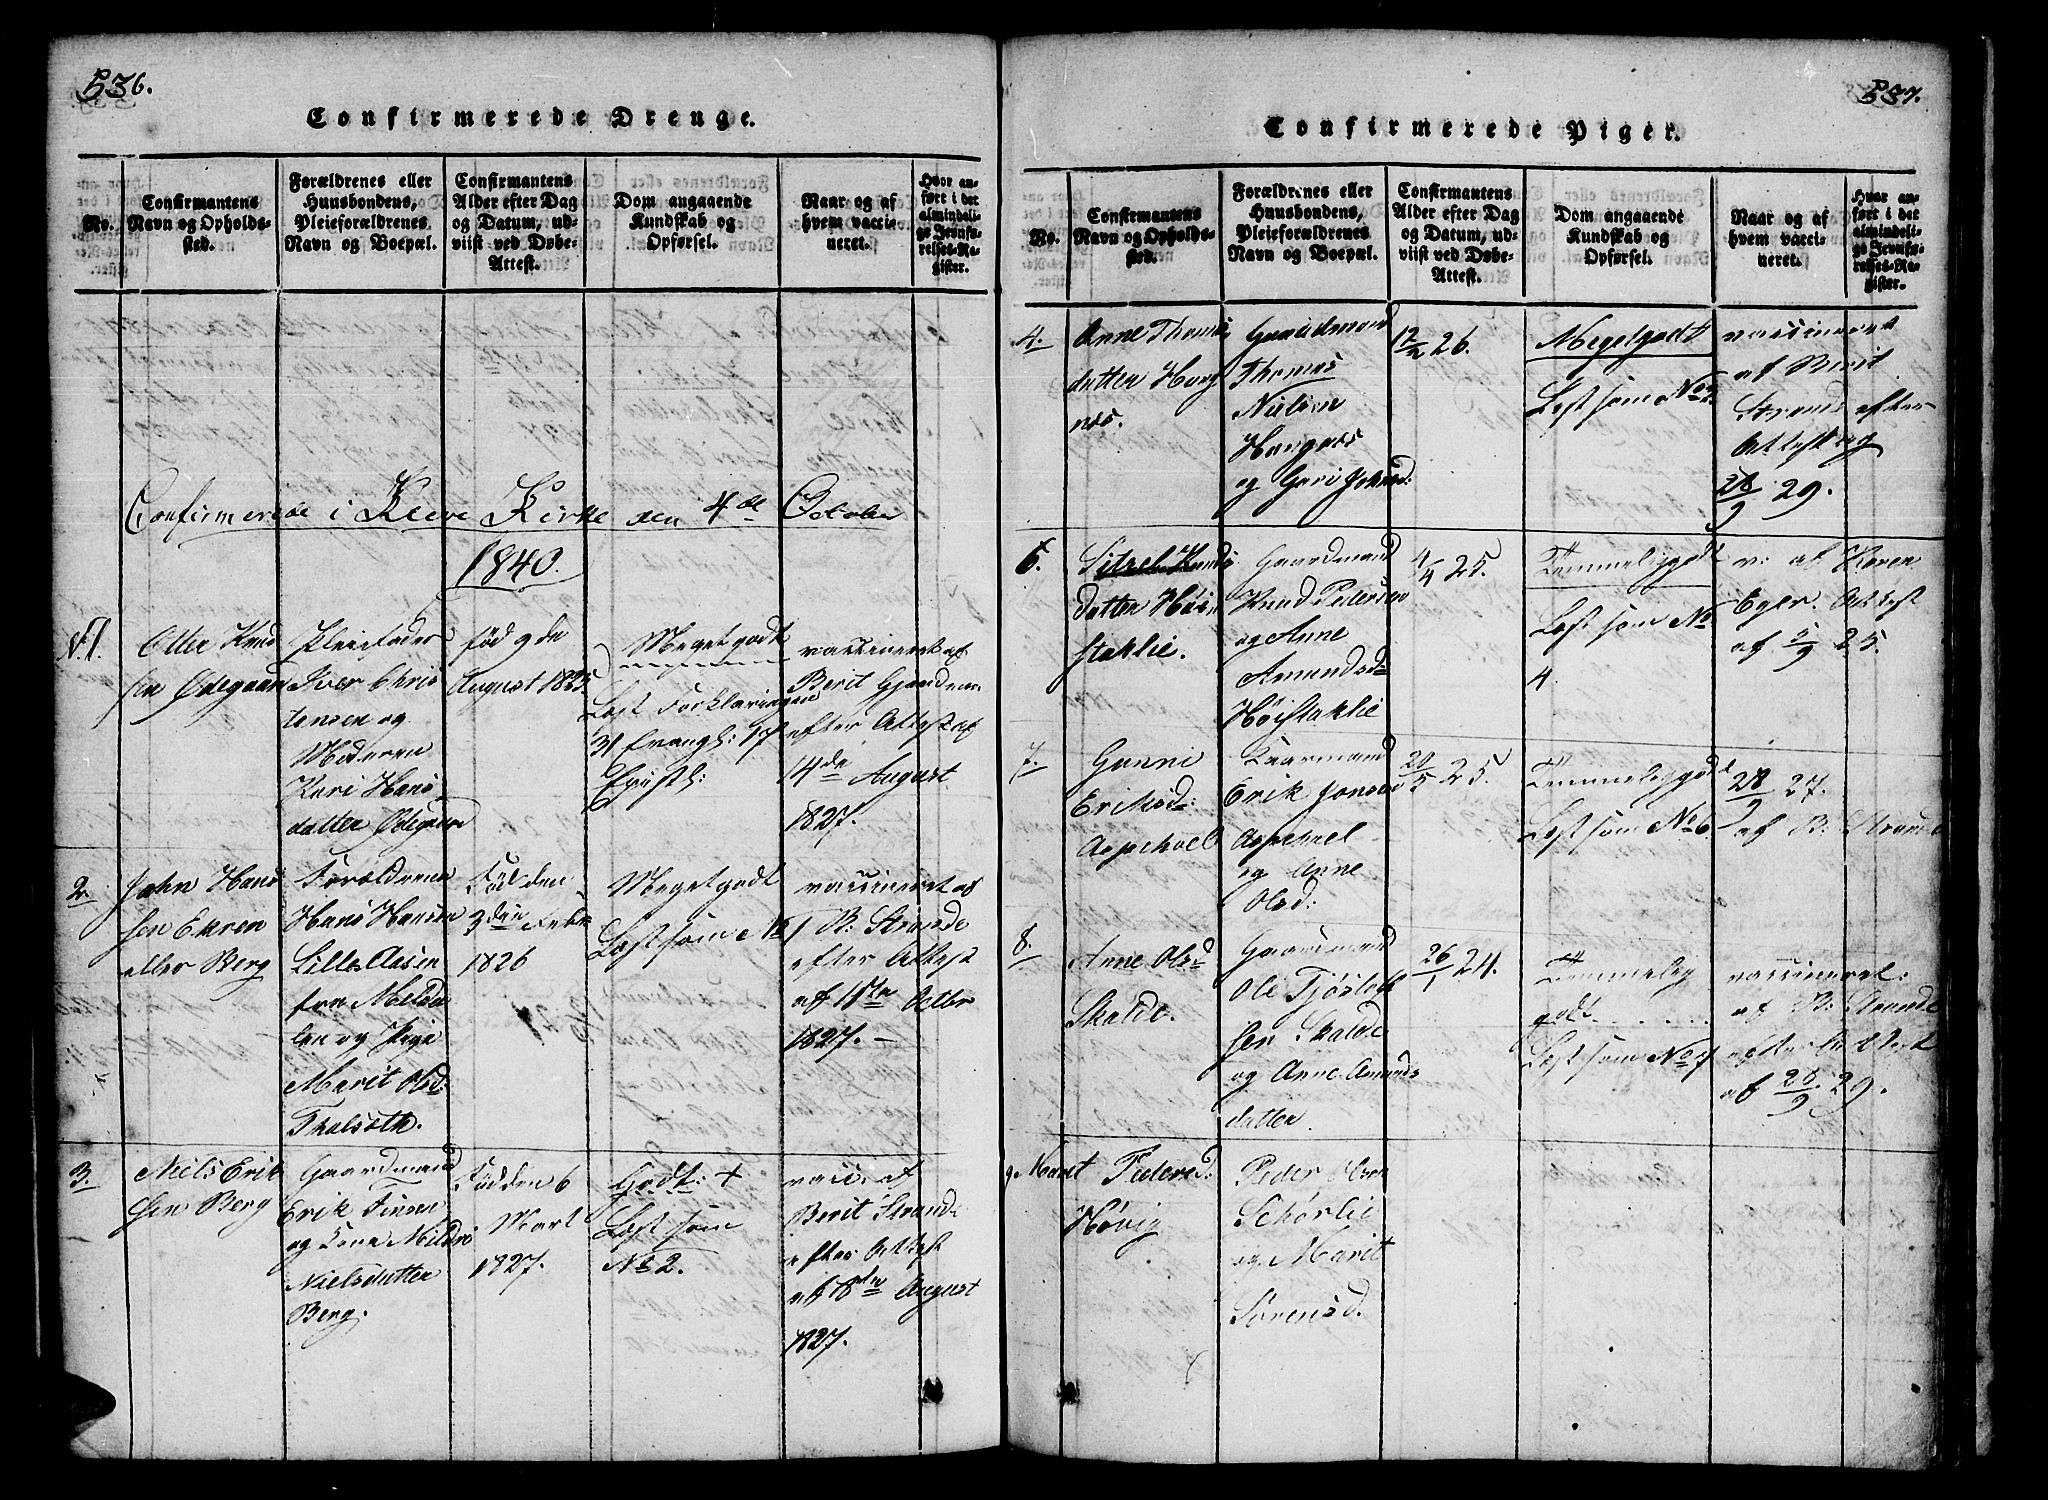 536.
Confirmerede Drenge.
No.
Confirmantens
Navn og Opholds-
sted.
Forældrenes eller
Huusbondens,
Pleieforældrenes
Navn og Boepæl.
Confirmantens
Alder efter Dag
og Datum, ud-
viist ved Døbe-
Attest.
Dom angaaende
Kundskab og
Opførsel.
Naar og af
hvem vacci-
neret.
Hvor an-
ført i det
almindeli-
ge Jevnfø-
relses-Re-
gister.
Confirmerede i Kirke den 4de October
1840.
N. 1.
Otter Knud
sen Ødegaard
Pleiefader
Iver Chris
tensen og
Moderen
Kari Hans
datter Ødegaard
fød 9de
August 1825
Meget godt
Læst Forklaringen
31 Evangl: 17
Epistl:
vaccineret af
Berit
efter Attest af
14de August
1827.
2
John Hans
sen Ekren
eller Berg
Forældrene
Hans Hansen
Lille Aasen
fra Melda
len og Pige
Marit Olsd:
Fød den
3den Febr
1826
Meget godt
Læst som No 1
vaccineret af
B: Strande
efter Attest
af 11te Octbr
1827.
3.
Niels Erik
sen Berg
Gaardmand
Erik Finsen
og Kone Mildri
Nielsdatter
Berg.
Fød den 6
Mart
1827.
Godt. +
Læst som
No 2.
vacc: af
Berit Strande
efter Attest
af 8de August
1827.
537.
Confirmerede Piger.
No.
Confirmantens
Navn og Opholds-
sted.
Forældrenes eller
Huusbondens,
Pleieforældrenes
Navn og Boepæl.
Confirmantens
Alder efter Dag
og Datum, ud-
viist ved Døbe-
Attest.
Dom angaaende
Kundskab og
Opførsel.
Naar og af
hvem vacci-
neret.
Hvor an-
ført i det
almindeli-
ge Jevnfø-
relses-Re-
gister.
4.
Anne Thomas
datter Houg
nes.
Gaardmand
Thomas
Nielsen
Hougnes
og Guri Johnsd:
12/2 26.
Meget godt
Læst som No
vaccineret
af Berit
Strand efter
Attest af
28/9 29.
6.
Sitzel Knuds
datter Høi
staklie.
Gaardmand
Knud Pedersen
og Anne
Amundsd
Høistaklie
4/4 25.
Temmelig godt
Læst som No
4
v: af Karen
Eger. Attest
af 5/9 25.
7.
Gunni
Eriksd:
Aspehoel
Huusmand
Erik Jonsen
Aspehoel
og Anne
Olsd:
20/5 25.
Temmelig godt
Læst som No 6
28/9 27.
af B: Strande
8.
Anne Olsd
Skalde.
Gaardmand
Ole Tjøstel
sen Skalde
og Anne Amunds
datter.
26/1 24.
Temmelig
godt
Læst som No 7
vaccineret:
af B: Strande
efter Attest
af 28/9 29.
9
Marit Pedersd:
Høvig
Peder Olsen
Schørlie
og Marit
Sørensd.